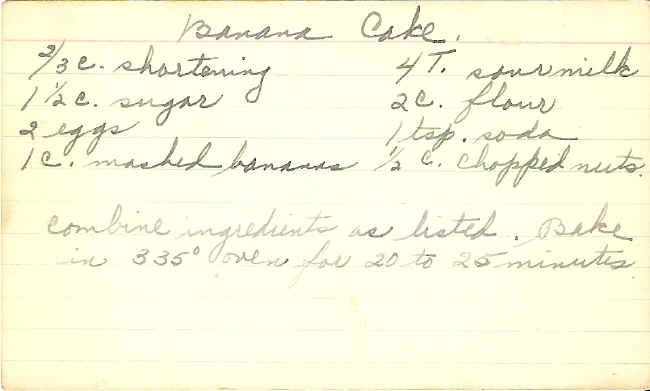 Banana Cake.
2/3 c. shortening 4 T. sour milk
1 1/2 c. sugar 2 c. flour
2 eggs 1 tsp. soda
1 c. mashed bananas 1/2 c. chopped nuts.
Combine ingredients as listed. Bake
in 335° oven for 20 to 25 minutes